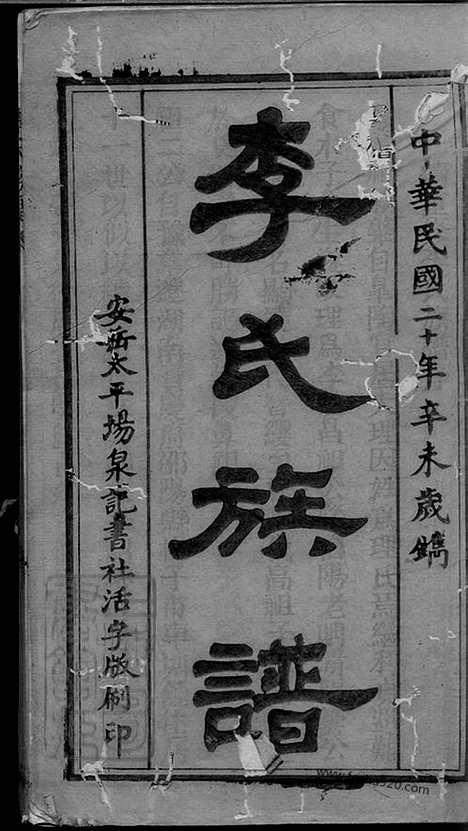 中華民國二十年辛未歲鐫
李氏族譜
安岳太平場泉記書社活字版刷印